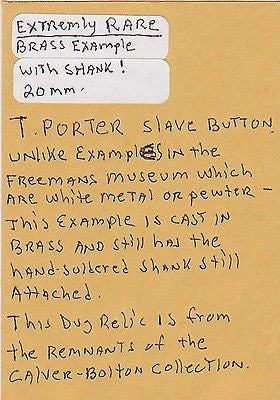 EXTREMLY RARE
BRASS Example
WITH SHANK!
20mm.
T. PORTER Slave BUTTON.
UNLIKE EXAMPlES IN the
FREEMANS MUSEUM WHICH
ARE WHITE METAL OR PEWTER -
THIS EXAMPLE IS CAST IN
BRASS AND STILL HAS the
HAND-SOLDERED SHANK STILL
ATTACHED.
THIS DUG RELIC IS FROM
the REMNANTS OF the
CALVER-BOLTON COLLECTION.